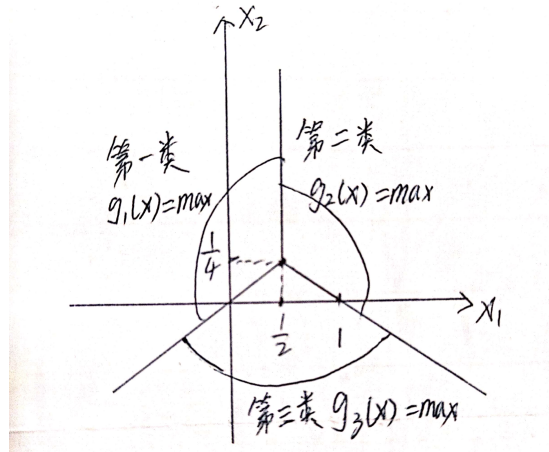 X₂
第一类
g₁(x)=max
第二类
g₂(x)=max
1/4
X₁
1/2
1
第三类 g₃(x)=max